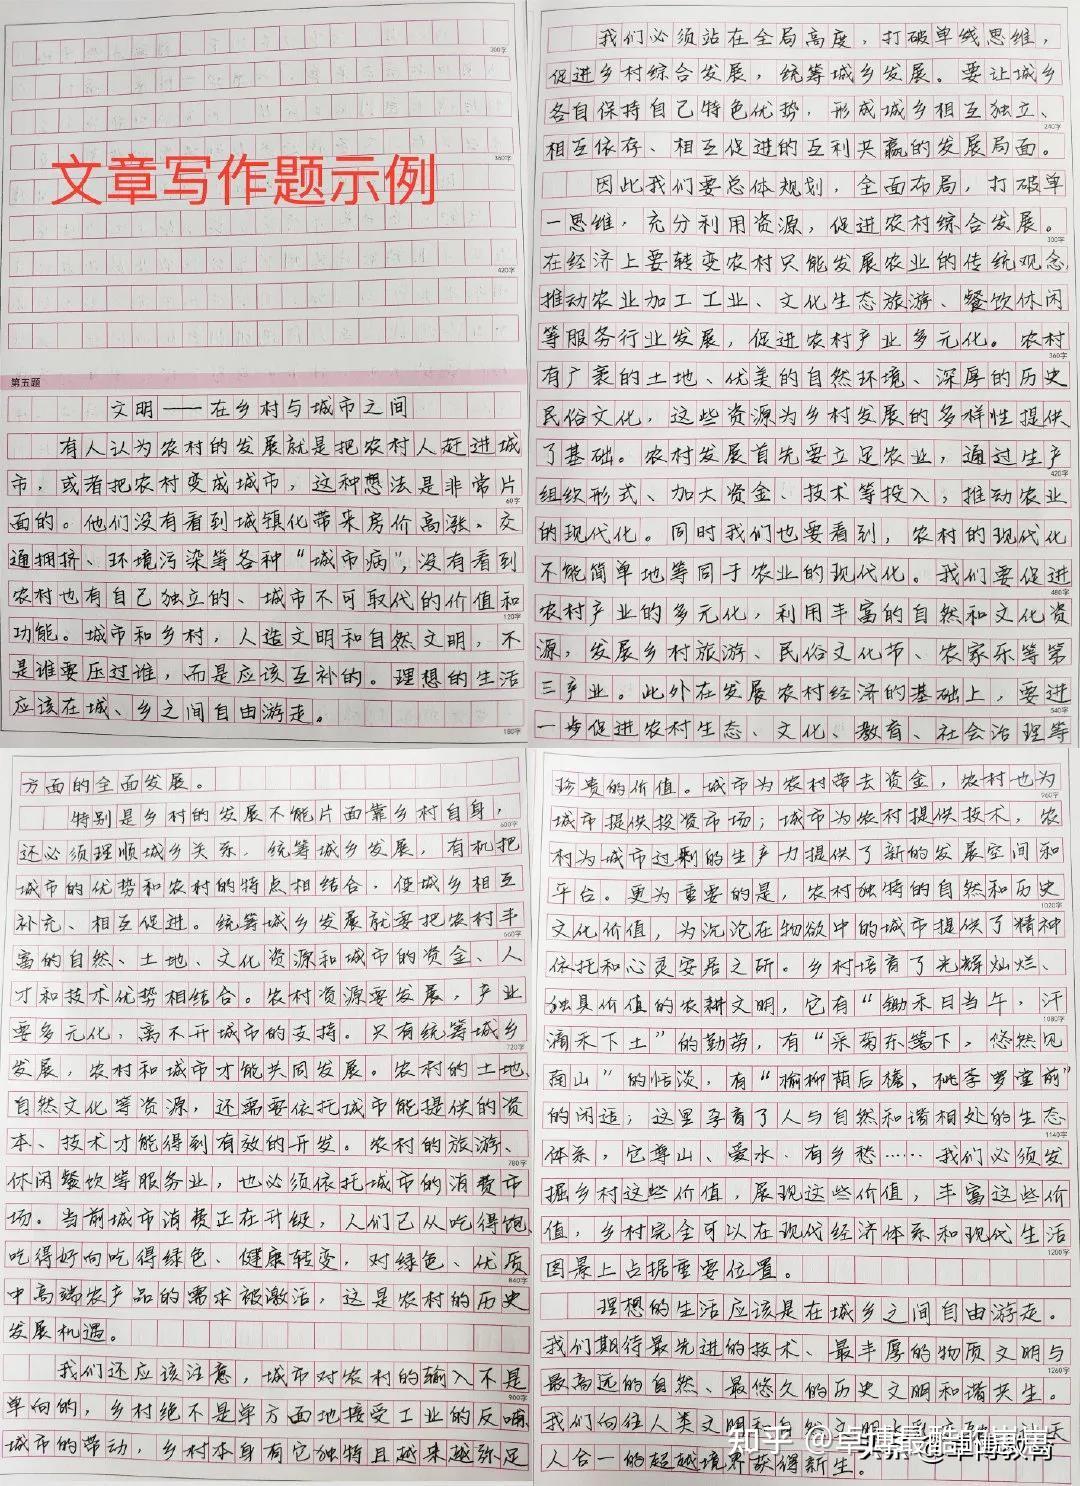 300字
360字
文章写作题示例
420字
第五题
文明——在乡村与城市之间
有人认为农村的发展就是把农村人赶进城
市，或者把农村变成城市，这种想法是非常片
60字
面的。他们没有看到城镇化带来房价高涨、交
通拥挤、环境污染等各种“城市病”，没有看到
农村也有自己独立的、城市不可取代的价值和
120字
功能。城市和乡村，人造文明和自然文明，不
是谁要压过谁，而是应该互补的。理想的生活
应该在城、乡之间自由游走。
180字
我们必须站在全局高度，打破单线思维，
促进乡村综合发展，统筹城乡发展。要让城乡
各自保持自己特色优势，形成城乡相互独立、
240字
相互依存、相互促进的互利共赢的发展局面。
因此我们要总体规划，全面布局，打破单
一思维，充分利用资源，促进农村综合发展。
300字
在经济上要转变农村只能发展农业的传统观念，
推动农业加工工业、文化生态旅游、餐饮休闲
等服务行业发展，促进农村产业多元化。农村
360字
有广袤的土地、优美的自然环境、深厚的历史
民俗文化，这些资源为乡村发展的多样性提供
了基础。农村发展首先要立足农业，通过生产
420字
组织形式、加大资金、技术等投入；推动农业
的现代化。同时我们也要看到，农村的现代化
不能简单地等同于农业的现代化。我们要促进
480字
农村产业的多元化，利用丰富的自然和文化资
源，发展乡村旅游、民俗文化节、农家乐等第
三产业。此外在发展农村经济的基础上，要进
540字
一步促进农村生态、文化、教育、社会治理等
方面的全面发展。
特别是乡村的发展不能片面靠乡村自身，
600字
还必须理顺城乡关系，统筹城乡发展，有机把
城市的优势和农村的特点相结合，使城乡相互
补充、相互促进。统筹城乡发展就要把农村丰
660字
富的自然、土地、文化资源和城市的资金、人
才和技术优势相结合。农村资源要发展，产业
要多元化，离不开城市的支持。只有统筹城乡
720字
发展，农村和城市才能共同发展。农村的土地、
自然文化等资源，还需要依托城市能提供的资
本、技术才能得到有效的开发。农村的旅游、
780字
休闲餐饮等服务业，也必须依托城市的消费市
场。当前城市消费正在升级，人们已从吃得饱、
吃得好向吃得绿色、健康转变，对绿色、优质
840字
中高端农产品的需求被激活，这是农村的历史
发展机遇。
我们还应该注意，城市对农村的输入不是
900字
单向的，乡村绝不是单方面地接受工业的反哺、
城市的带动，乡村本身有它独特且越来越弥足
珍贵的价值。城市为农村带去资金，农村也为
960字
城市提供投资市场；城市为农村提供技术，农
村为城市过剩的生产力提供了新的发展空间和
平台。更为重要的是，农村独特的自然和历史
1020字
文化价值，为沉沦在物欲中的城市提供了精神
依托和心灵安居之所。乡村培育了光辉灿烂、
独具价值的农耕文明，它有“锄禾日当午，汗
1080字
滴禾下土”的勤劳，有“采菊东篱下，悠然见
南山”的恬淡，有“榆柳荫后檐，桃李罗堂前”
的闲适；这里孕育了人与自然和谐相处的生态
1140字
体系，它尊山、爱水、有乡愁……我们必须发
掘乡村这些价值，展现这些价值，丰富这些价
值，乡村完全可以在现代经济体系和现代生活
1200字
图景上占据重要位置。
理想的生活应该是在城乡之间自由游走。
我们期待最先进的技术、最丰厚的物质文明与
1260字
最高远的自然、最悠久的历史文明和谐共生。
我们向往人类文明和自然文明
人合一的超越境界获得新生。
知乎